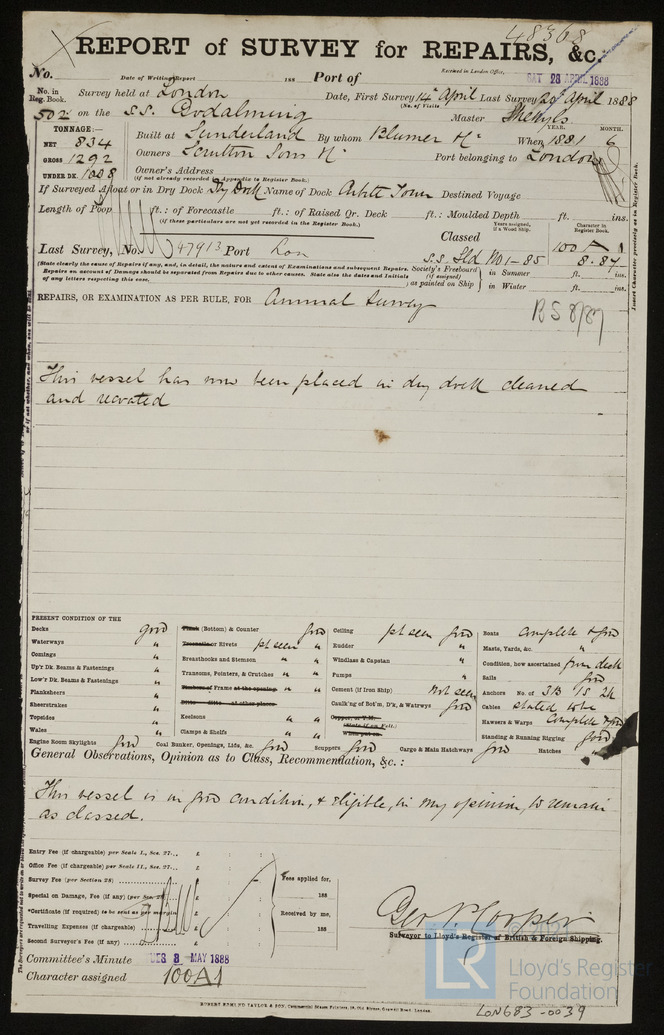 48368
REPORT of SURVEY for REPAIRS, &c.
No. Date of Writing Report 188 Port of Received in London Office, SAT 28 APRIL 1888
No. in Reg. Book. Survey held at London Date, First Survey 14th April Last Survey 20th April 1888
(No. of Visits)
502 on the s.s. Godalming Master
TONNAGE:— Built at Sunderland By whom Blumer & Co When 1881 6
YEAR. MONTH.
NET 834
GROSS 1292 Owners Scrutton Sons & Co Port belonging to London
UNDER DK. 1008 Owner's Address
(If not already recorded in Appendix to Register Book.)
If Surveyed Afloat or in Dry Dock Dry Dock Name of Dock Destined Voyage
Length of Poop ft.: of Forecastle ft.: of Raised Qr. Deck ft.: Moulded Depth ft. ins.
(If these particulars are not yet recorded in the Register Book.)
Years assigned, if a Wood Ship. Character in Register Book.
Classed 100 A 1
Last Survey, No. 47913 Port Lon s.s. Sld No 1-85 8.87
(State clearly the cause of Repairs if any, and, in detail, the nature and extent of Examinations and subsequent Repairs.
Repairs on account of Damage should be separated from Repairs due to other causes. State also the dates and Initials
of any letters respecting this case.
Society's Freeboard (if assigned) as painted on Ship
in Summer ft. ins.
in Winter ft. ins.
Insert Character precisely as in Register Book.
REPAIRS, OR EXAMINATION AS PER RULE, FOR Annual Survey
BS 8/87
This vessel has now been placed in dry dock cleaned
and recoated
PRESENT CONDITION OF THE
Decks good
Waterways "
Comings "
Up'r Dk. Beams & Fastenings "
Low'r Dk. Beams & Fastenings "
Planksheers "
Sheerstrakes "
Topsides "
Wales "
Engine Room Skylights good
Plank (Bottom) & Counter good
Treenails or Rivets pt seen good
Breasthooks and Stemson " "
Transoms, Pointers, & Crutches " "
Timbers of Frame at the opening " "
Ditto Ditto at other places
Keelsons " "
Clamps & Shelfs " "
Coal Bunker, Openings, Lids, &c. good
Ceiling pt seen good
Rudder "
Windlass & Capstan "
Pumps "
Cement (if Iron Ship) Not seen
Caulk'ng of Bot'm, D'k, & Watrwys good
Copper, or Y.M.
(State if on Felt.)
When put on
Scuppers good
Cargo & Main Hatchways good
Boats Complete & good
Masts, Yards, &c. "
Condition, how ascertained from deck
Sails good
Anchors No. of 3B 1S 2K
Cables stated to be
Hawsers & Warps Complete & good
Standing & Running Rigging good
Hatches "
General Observations, Opinion as to Class, Recommendation, &c.:
This vessel is in good condition, & eligible, in my opinion, to remain
as classed.
Entry Fee (if chargeable) per Scale I., Sec. 27... £
Office Fee (if chargeable) per Scale II., Sec. 27... £
Survey Fee (per Section 28) £
Special on Damage, Fee (if any) (per Sec. 28) £
*Certificate (if required) to be sent as per margin £
Travelling Expenses (if chargeable) £
Second Surveyor's Fee (if any) £
Fees applied for,
188
Received by me,
188
Geo. P. Cooper
Surveyor to Lloyd's Register of British & Foreign Shipping.
Committee's Minute TUES 8 MAY 1888
Character assigned 100A1
© 2021
LR
Lloyd's Register
Foundation
LON683-0039